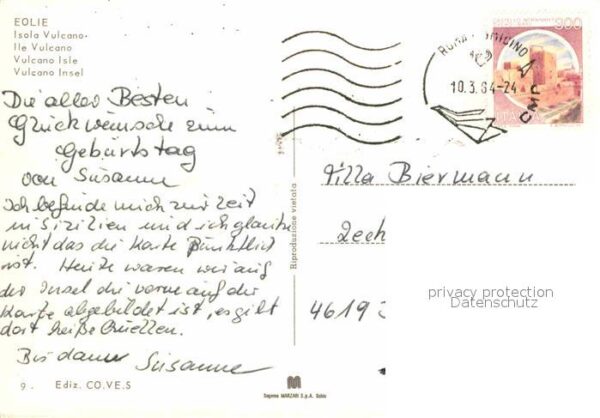 EOLIE
Isola Vulcano-
Ile Vulcano
Vulcano Isle
Vulcano Insel
Die aller Besten
Glückwünsche zum
Geburtstag
von Susanne
Ich befinde mich zur Zeit
in Sizilien und ich glaube
nicht das die Karte Pünktlich
ist. Heute waren wir auf
der Insel die vorne auf der
Karte abgebildet ist, es gibt
dort heiße Quellen.
Bis dann Susanne
9. Ediz. CO.VE.S
Riproduzione vietata
M
ROMA FIUMICINO
10.3.84-24
CMP
900
ITALIA
Biermann
Zech
4619
privacy protection
Datenschutz